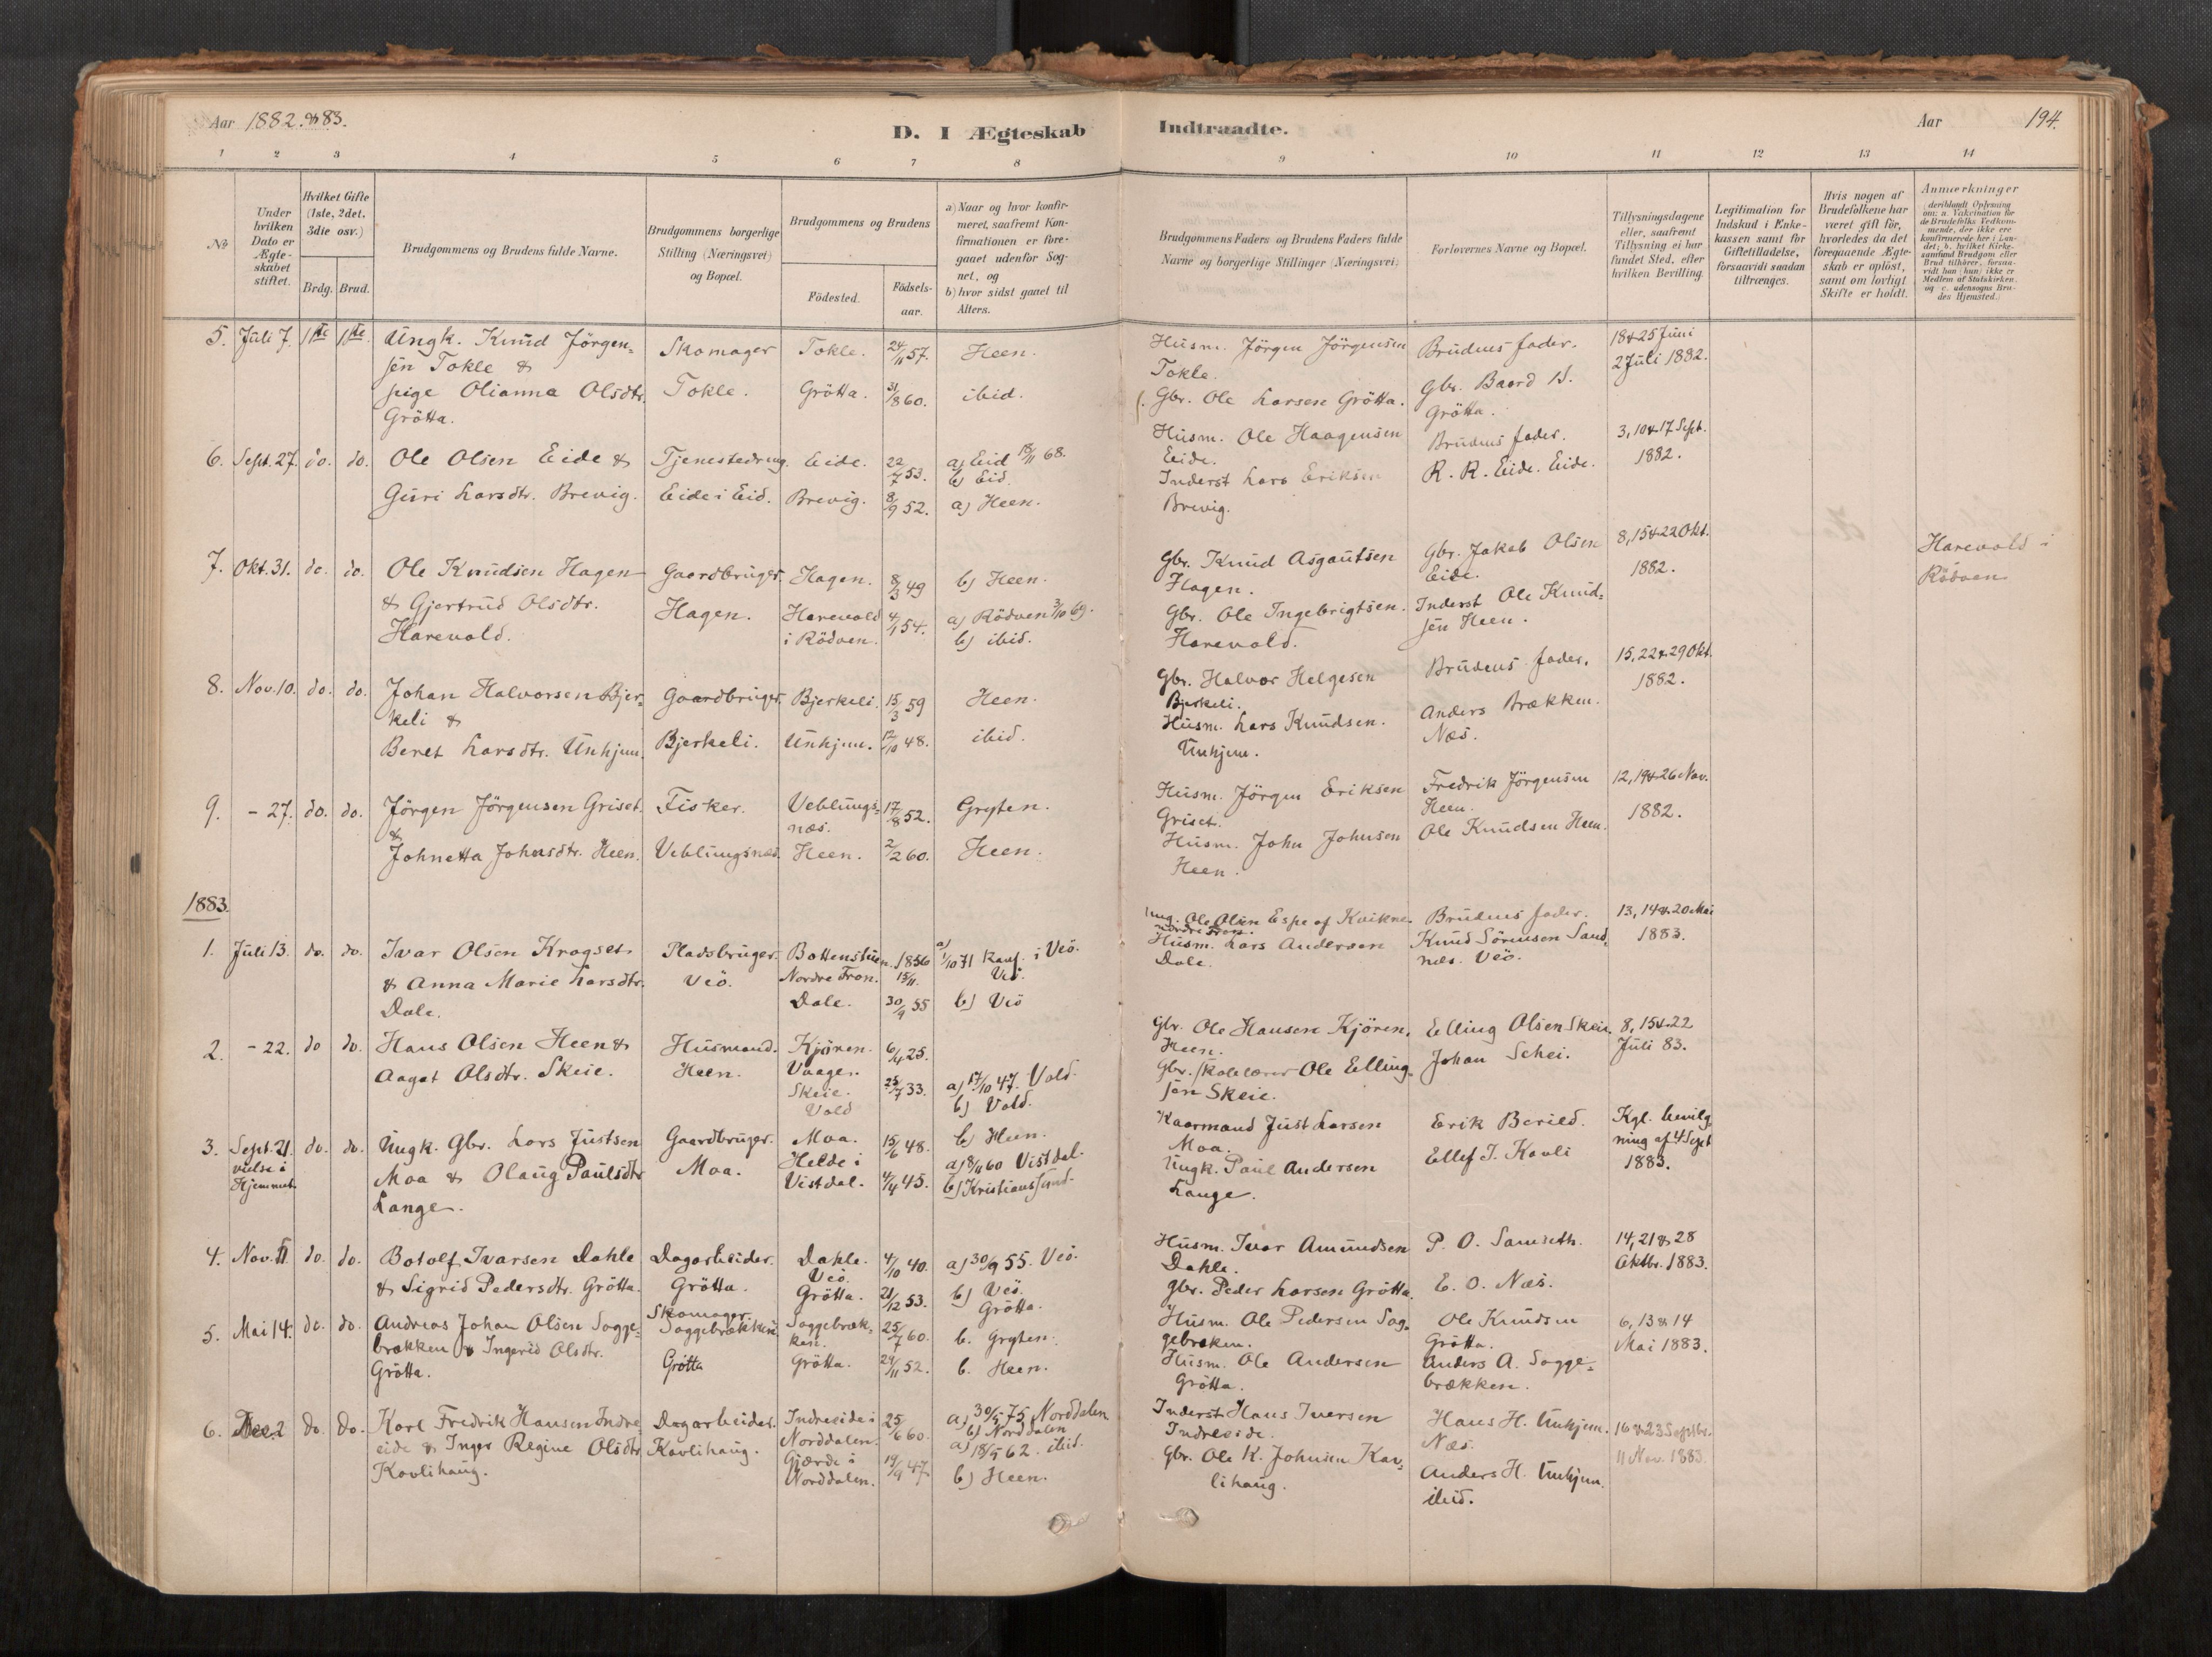 Aar 1882. & 83.
D. I Ægteskab
Indtraadte.
Aar
194.
1 2 3 4 5 6 7 8 9 10 11 12 13 14
No
Under hvilken Dato er Ægteskabet stiftet.
Hvilket Gifte (1ste, 2det, 3die osv.)
Brdg. Brud.
Brudgommens og Brudens fulde Navne.
Brudgommens borgerlige Stilling (Næringsvei) og Bopæl.
Brudgommens og Brudens
Födested.
Födsels-aar.
a) Naar og hvor konfirmeret, saafremt Konfirmationen er foregaaet udenfor Sognet, og
b) hvor sidst gaaet til Alters.
Brudgommens Faders og Brudens Faders fulde Navne og borgerlige Stillinger (Næringsvei)
Forlovernes Navne og Bopæl.
Tillysningsdagene eller, saafremt Tillysning ei har fundet Sted, efter hvilken Bevilling.
Legitimation for Indskud i Enkekassen samt for Giftetilladelse, forsaavidt saadan tiltrænges.
Hvis nogen af Brudefolkene har været gift för, hvorledes da det foregaaende Ægteskab er oplöst, samt om lovligt Skifte er holdt.
Anmærkninger (deriblandt Oplysning om: a. Vakcination for de Brudefolks Vedkommende, der ikke ere konfirmerede her i Landet; b. hvilket Kirkesamfund Brudgom eller Brud tilhörer, forsaavidt han (hun) ikke er Medlem af Statskirken, og c. udensogns Brudes Hjemsted.)
5. Juli 7. 1ste 1ste. Ungk. Knud Jörgen- Skomager Tokle. 24/11 57. Heen. Husm. Jörgen Jörgensen Brudens fader. 18 & 25 Juni
sen Tokle & Tokle. 2 Juli 1882.
pige Olianna Olsdtr. Tokle. Grötta. 31/8 60. ibid. Gbr. Ole Larsen Grötta. Gbr. Baard
Grötta. Grötta.
6. Sept. 27. do. do. Ole Olsen Eide & Tjenestedreng. Eide. 22/7 53. a) Eid 18/11 68. Husm. Ole Haagensen Brudens fader. 3, 10 & 17 Sept.
b) Eid. Eide. 1882.
Guri Larsdtr. Brevig. Eide i Eid. Brevig. 8/9 52. a) Heen. Inderst Lars Eriksen R. R. Eide. Eide.
Brevig.
7. Okt. 31. do. do. Ole Knudsen Hagen Gaardbruger. Hagen. 8/3 49 b) Heen. Gbr. Knud Asgautsen Gbr. Jakob Olsen 8, 15 & 22 Okt. Harevold i
Hagen. Eide. 1882. Rödven
& Gjertrud Olsdtr. Hagen. Harevold 4/1 54. a) Rödven 3/10 69. Gbr. Ole Ingebrigtsen. Inderst Ole Knud-
Harevold. i Rödven. b) ibid. Harevold. sen Heen.
8. Nov. 10. do. do. Johan Halvorsen Bjer- Gaardbruger. Bjerkeli. 15/3 59 Heen. Gbr. Halvor Helgesen Brudens fader. 15, 22 & 29 Okt.
keli & Bjerkeli. 1882.
Beret Larsdtr. Unhjem. Bjerkeli. Unhjem. 12/10 48. ibid. Husm. Lars Knudsen. Anders Brækken.
Unhjem. Næs.
9. - 27. do. do. Jörgen Jörgensen Griset. Fisker. Veblungs- 17/8 52. Gryten. Husm. Jörgen Eriksen Fredrik Jörgensen 12, 19 & 26 Nov.
& næs. Griset. Heen. 1882.
Johnetta Johnsdtr. Heen. Veblungsnæs. Heen. 2/2 60. Heen. Husm. John Johnsen Ole Knudsen Heen.
Heen.
1883.
1. Juli 13. do. do. Ivar Olsen Krogset Pladsbruger. Bottenstuen. 1856 a) 1/10 71 Konf. i Veö. Ung. Ole Olsen Espe af Kvikne. Brudens fader. 13, 14 & 20 Mai
Nordre Fron. 15/11. Veö. nordre Fron. 1883.
& Anna Marie Larsdtr. Veö. Dale. 30/9 55 b) Veö Husm. Lars Andersen Knud Sörensen Sand-
Dale. Dale. næs. Veö.
2. - 22. do do. Hans Olsen Heen & Husmand. Kjören. 6/4 25. Gbr. Ole Hansen Kjören. Elling Olsen Skeie. 8, 15 & 22
Heen. Vaage. Heen. Juli 83.
Aagot Olsdtr. Skeie. Skeie. 25/7 33. a) 17/10 47. Vold. Gbr. skolelærer Ole Elling- Johan Schei.
Vold b) Vold. sen Skeie.
3. Sept. 21. do. do. Ungk. Gbr. Lars Justsen Gaardbruger. Moa. 15/6 48. b) Heen. Kaarmand Just Larsen Erik Berild. Kgl. bevilg
vielse i Hjemmet. Moa. ning af 4 Sept
Moa & Olaug Paulsdtr Moa. Helde i Vistdal. 4/4 45. a) 8/11 60 Vistdal. b) Kristianssund. Ungk. Paul Andersen Ellef J. Kavli 1883.
Lange. Lange.
4. Nov. 11 do. do. Botolf Ivarsen Dahle Dagarbeider. Dahle. 4/10 40. a) 30/9 55. Veö. Husm. Ivar Amundsen P. O. Samseth. 14, 21 & 28
Veö. Dahle. Oktbr. 1883.
& Sigrid Pedersdtr. Grötta. Grötta. Grötta. 21/12 53. b) Veö. Grötta. Gbr. Peder Larsen Grötta. E. O. Næs.
5. Mai 14. do. do. Andreas Johan Olsen Sogge- Skomager. Soggebrækken. Soggebræk- 25/7 60. b. Gryten. Husm. Ole Pedersen Sog- Ole Knudsen 6, 13 & 14
brækken & Ingerid Olsdtr. ken. gebræken. Grötta. Mai 1883.
Grötta. Grötta Grötta. 24/11 52. b. Heen. Husm. Ole Andersen Anders A. Sogge-
Grötta. brækken.
6. Dec. 2 do. do. Karl Fredrik Hansen Indre- Dagarbeider. Indreeide i 25/6 60. a) 30/5 75 Norddalen Inderst Hans Iversen Hans H. Unhjem. 16 & 23 Septbr.
eide & Inger Regine Olsdtr Kavlihaug. Norddalen. b) Norddalen Indreeide. Næs. 11 Nov. 1883.
Kavlihaug. Gjærde i 19/9 47 a) 18/5 62. ibid. Gbr. Ole K. Johnsen Kav- Anders H. Unhjem.
Norddalen. b) Heen. lihaug. ibid.